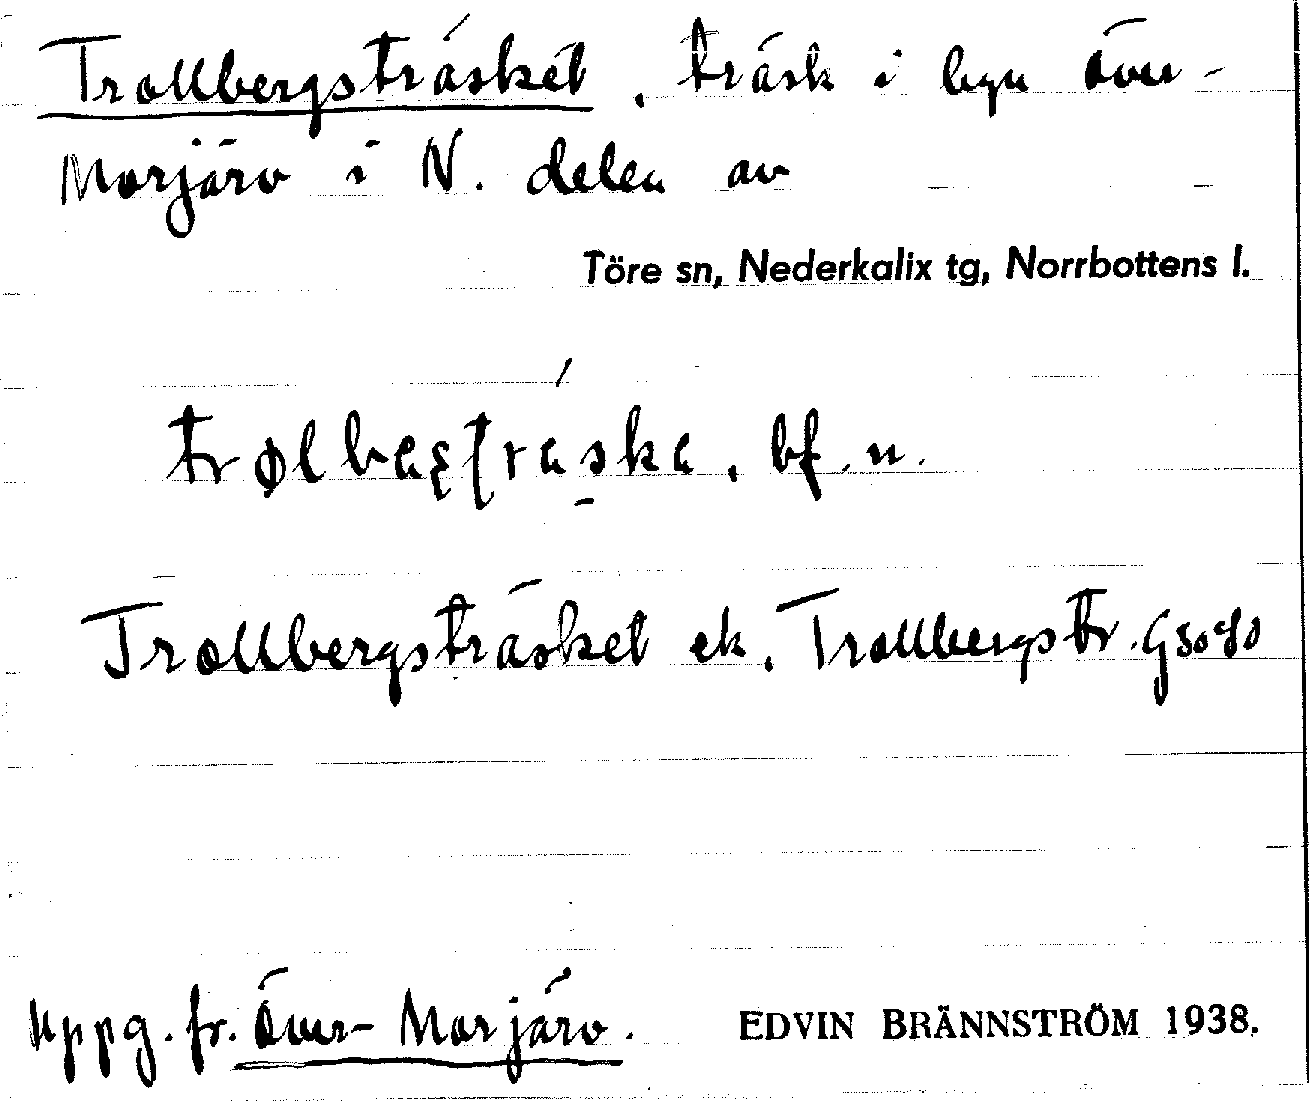 Trollbergsträsket, träsk i byn Över-
Morjärv i N. delen av
Töre sn, Nederkalix tg, Norrbottens l.
bf. n.
Trollbergsträsket ek. Trollbergstr. Gsoso
Uppg. fr. Över-Morjärv.
EDVIN BRÄNNSTRÖM 1938.